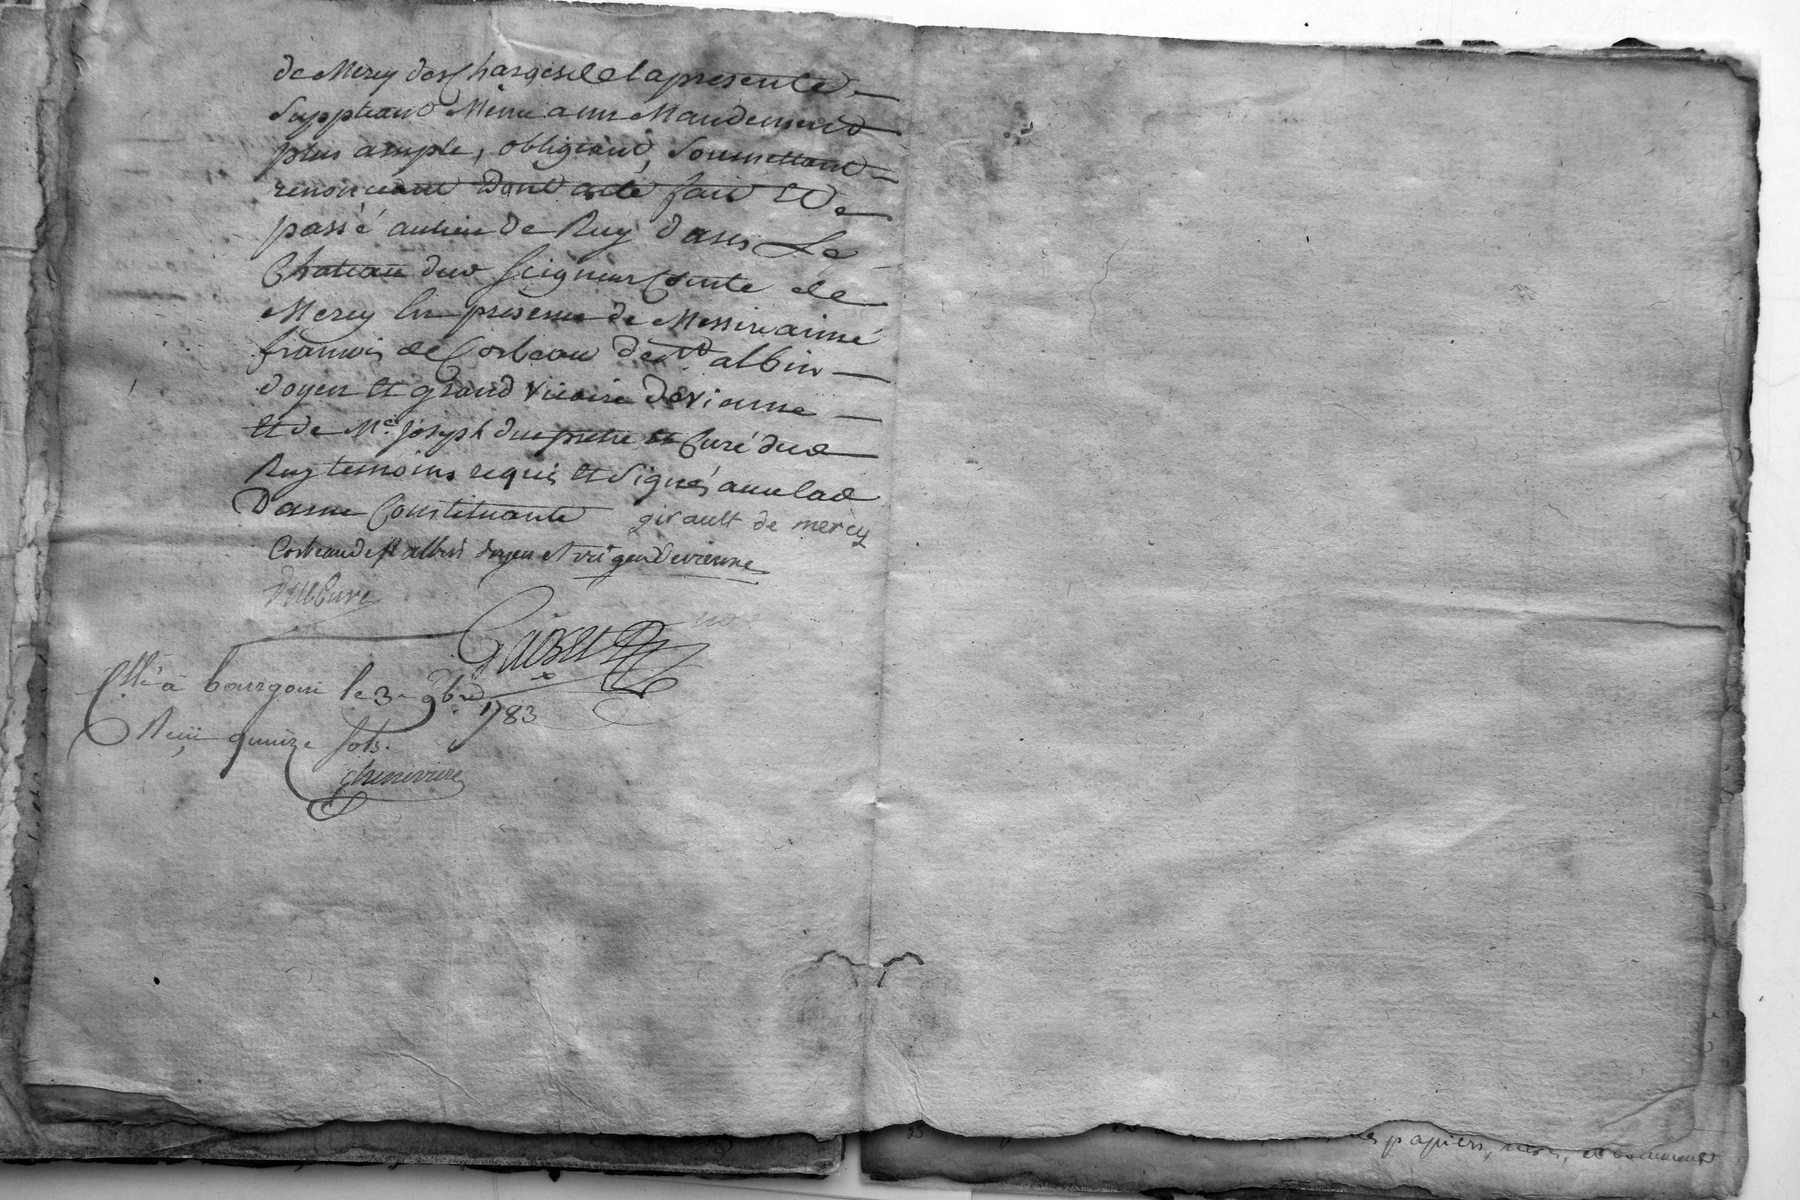 de Mercy des Charges de la presente
Suppleant Meme a un Mandement
plus ample, obligeant, Soumettant
renonceant Dont acte fait Et
passé au lieu de Ruy dans Le
Chateau dud Seigneur Comte de
Mercy En presence de Messire aimé
francois de Corbeau de St albin
doyen Et grand Vicaire de Vienne
Et de Me. Joseph pretre Et Curé dud
Ruy temoins requis Et Signés avec lad
Dame Constituante girault de mercy
Corbeau de st albin doyen et vic gen de vienne
Curé
Cllé à bourgoin le 3e 9bre 1783
Reçu quinze sols.
chenevriere
papiers,